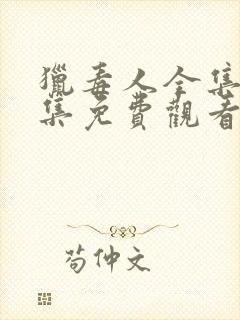 獵毒人全集
集免費觀看
苟仲文